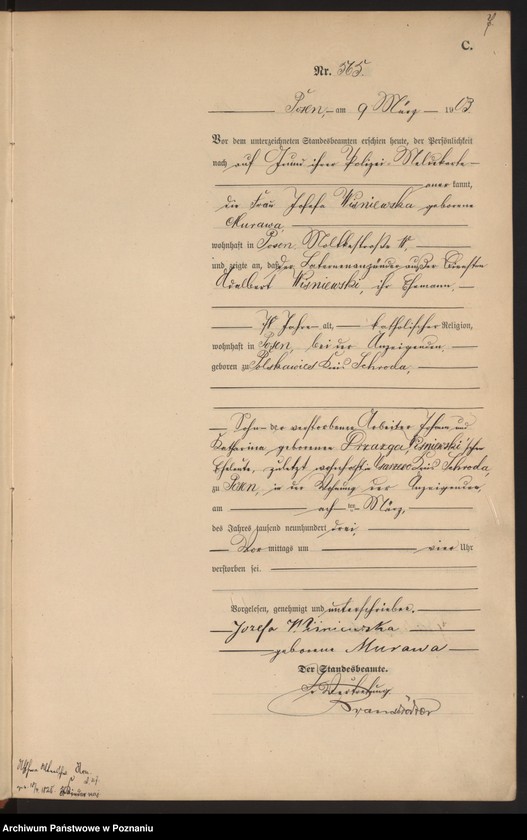 C.
Nr. 565
Posen, am 9 März 1903
Vor dem unterzeichneten Standesbeamten erschien heute, der Persönlichkeit
nach auf Grund ihrer Polizei Meldekarte
anerkannt,
die Frau Josefa Wisniewska geborene
Murawa,
wohnhaft in Posen Moltkestraße
und zeigte an, daß der Laternenanzünder außer Direktion
Adalbert Wisniewski, ihr Ehemann,
Jahre alt, katholischer Religion,
wohnhaft in Posen, bei der Anzeigenden,
geboren zu Kreis Schroda,
Sohn der verstorbenen Arbeiter Johann und
Katharina geborenen Wisniewski'schen
Eheleute, zuletzt wohnhaft in Kreis Schroda,
zu Posen, in der Wohnung der Anzeigenden,
am acht ten März,
des Jahres tausend neunhundert drei,
Vor mittags um vier Uhr
verstorben sei.
Vorgelesen, genehmigt und unterschrieben.
Jozefa Wiśniewska
geborene Murawa
Der Standesbeamte.
In Vertretung
Archiwum Państwowe w Poznaniu